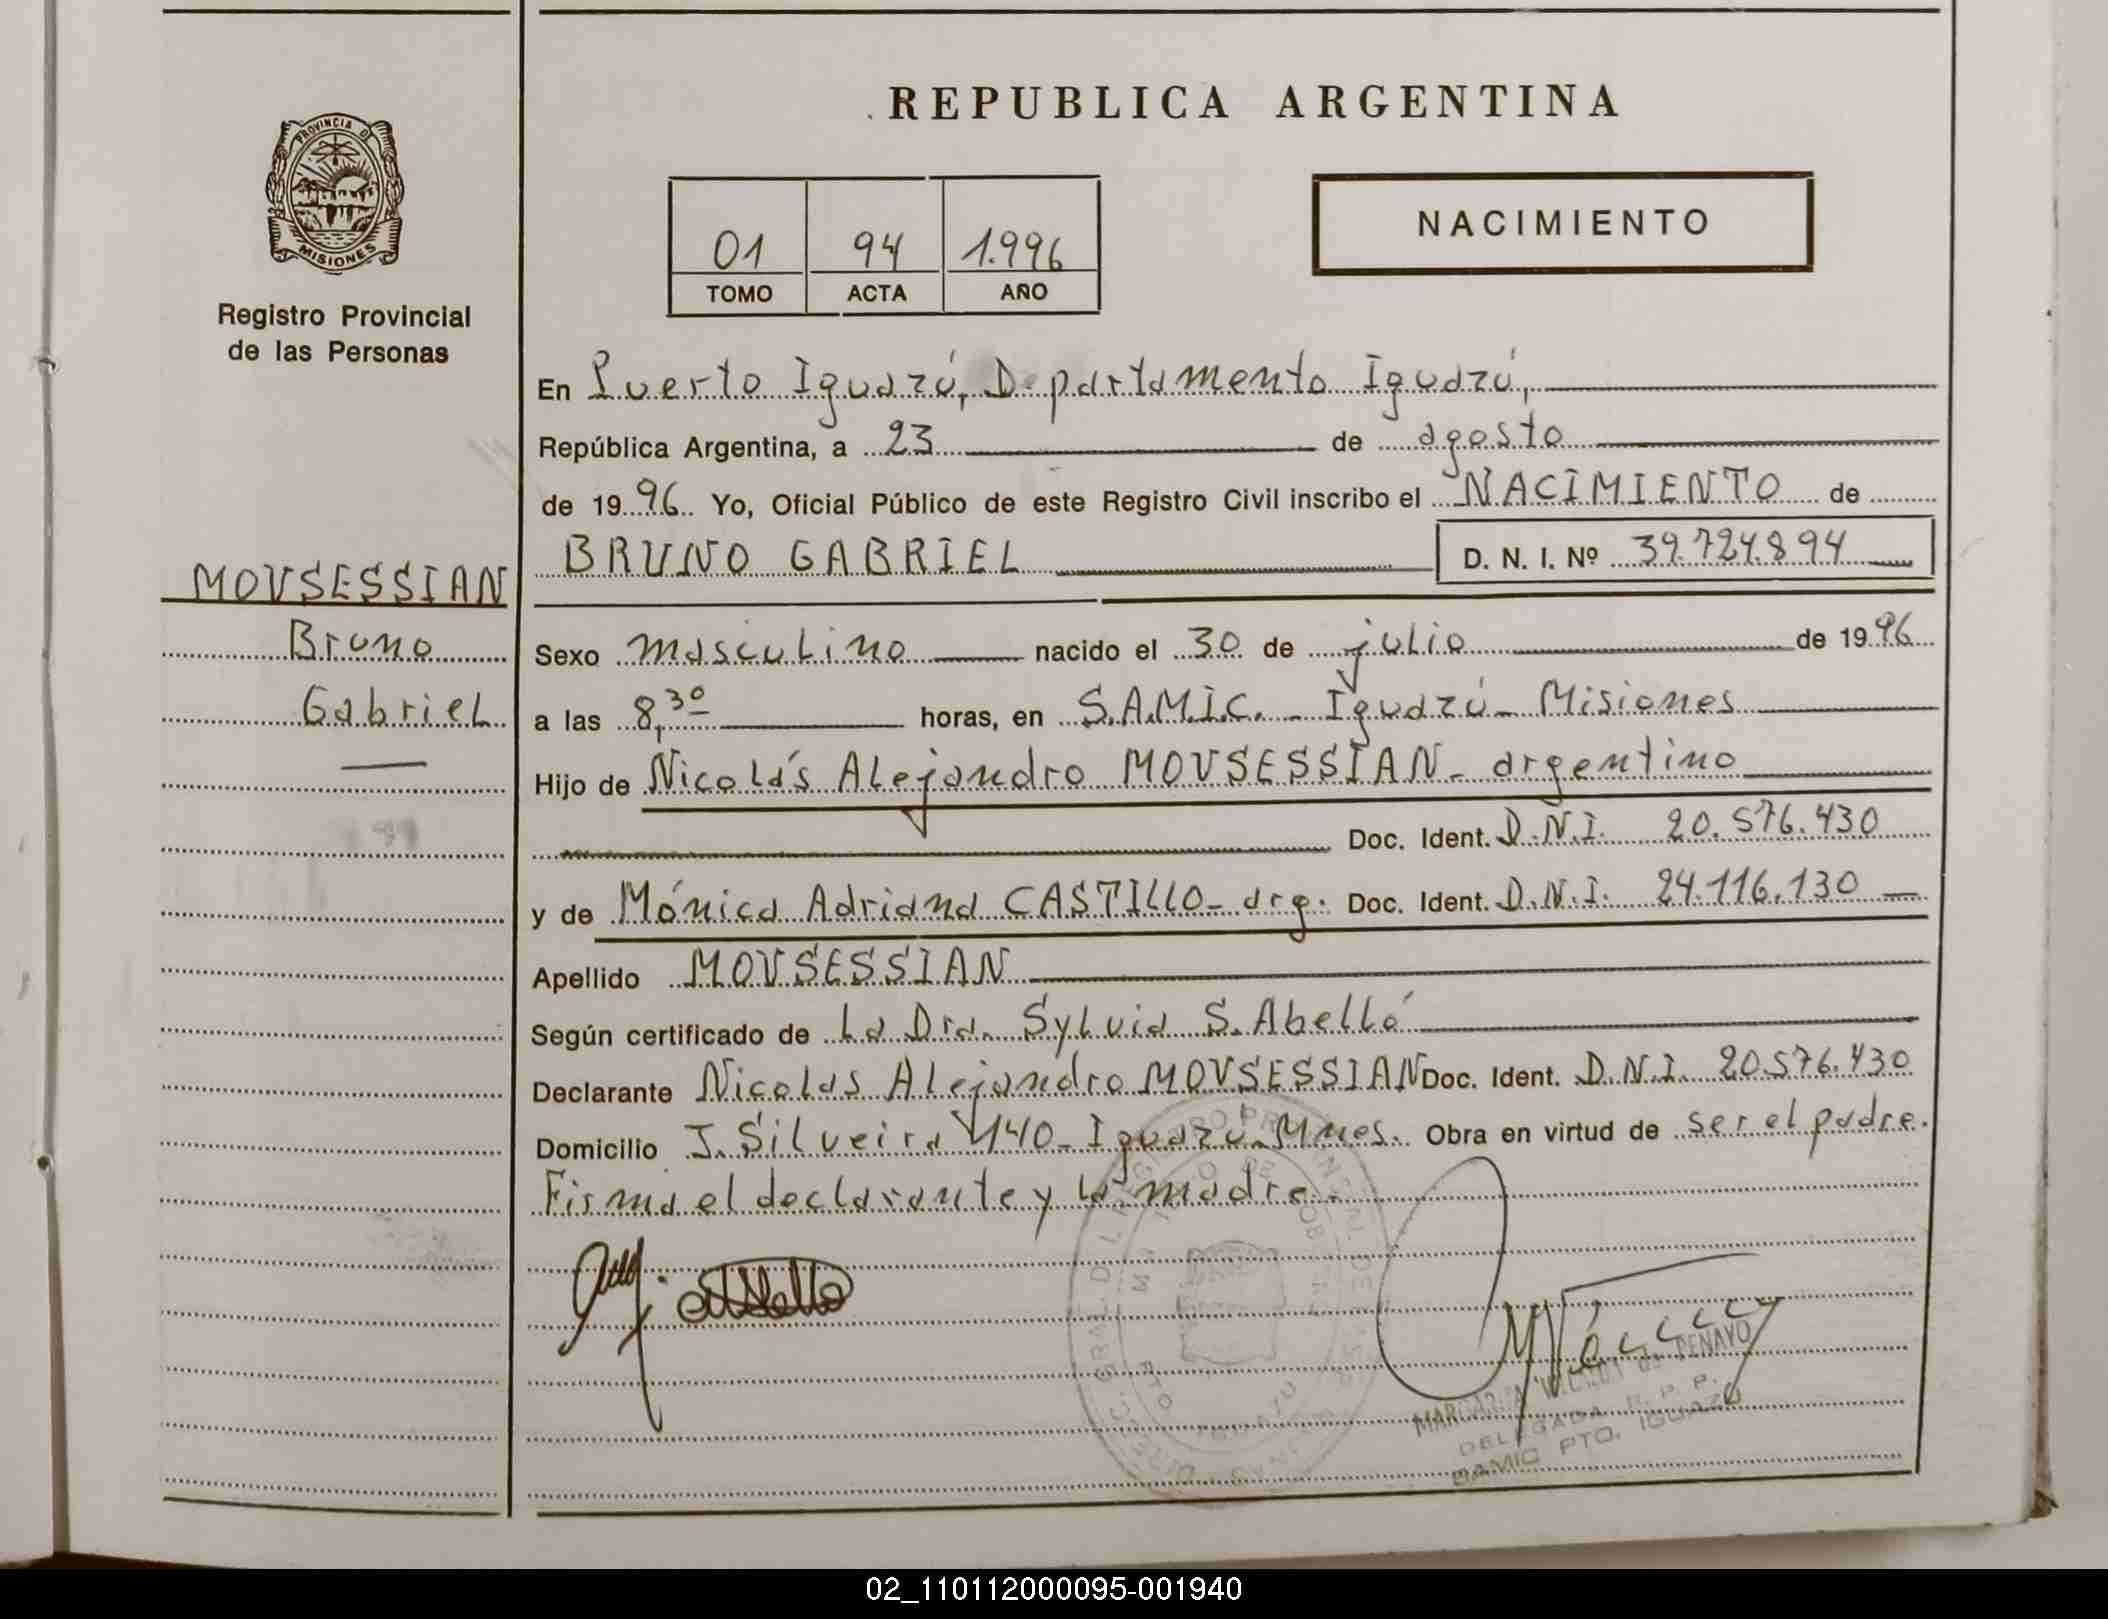 REPUBLICA ARGENTINA
PROVINCIA DE
MISIONES
Registro Provincial
de las Personas
01 94 1.996
TOMO ACTA AÑO
NACIMIENTO
En Puerto Iguazú, Departamento Iguazú,
República Argentina, a 23 de agosto
de 1996 Yo, Oficial Público de este Registro Civil inscribo el NACIMIENTO de
BRUNO GABRIEL D. N. I. Nº 39.724.894
MOVSESSIAN
Bruno
Gabriel
Sexo masculino nacido el 30 de julio de 1996
a las 8,30 horas, en S.A.M.I.C. - Iguazú - Misiones
Hijo de Nicolás Alejandro MOVSESSIAN - argentino
Doc. Ident. D.N.I. 20.576.430
y de Mónica Adriana CASTILLO - arg. Doc. Ident. D.N.I. 24.116.130
Apellido MOVSESSIAN
Según certificado de La Dra. Sylvia S. Abelló
Declarante Nicolas Alejandro MOVSESSIAN Doc. Ident. D.N.I. 20.576.430
Domicilio J. Silveira 440 - Iguazú - Mnes. Obra en virtud de ser el padre.
Firma el declarante y la madre.
MARGARITA DE PENAYO
DELEGADA R. P. P.
SAMIC PTO. IGUAZU
02_110112000095-001940